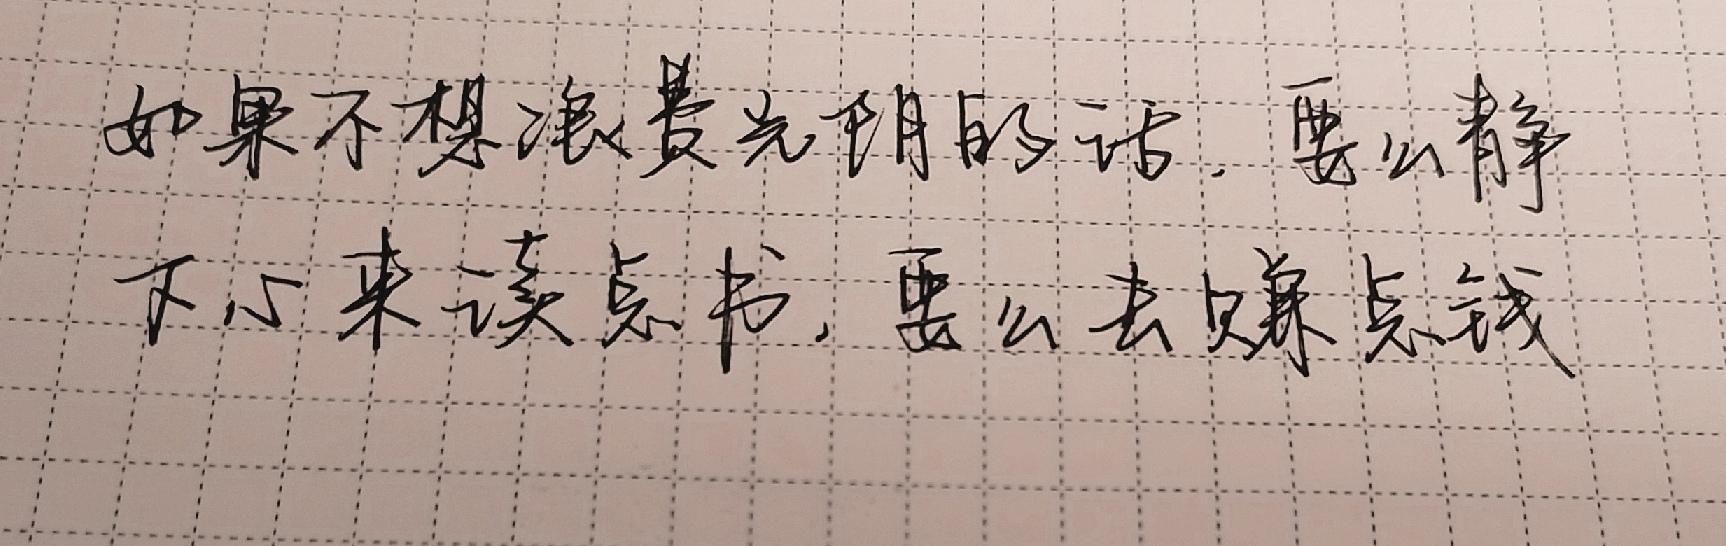 如果不想浪费光阴的话，要么静
下心来读点书，要么去赚点钱